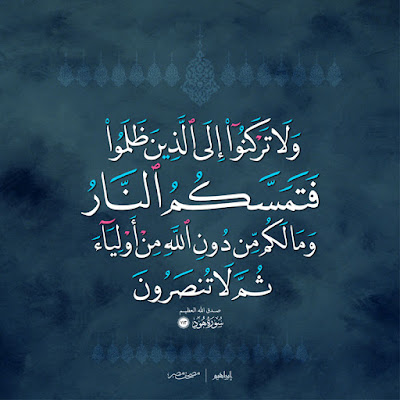 وَلَا تَرْكَنُوٓا۟ إِلَى ٱلَّذِينَ ظَلَمُوا۟
فَتَمَسَّكُمُ ٱلنَّارُ
وَمَا لَكُم مِّن دُونِ ٱللَّهِ مِنْ أَوْلِيَآءَ
ثُمَّ لَا تُنصَرُونَ
صدق الله العظيم
سُورَةُ هُودٍ ١١٣
إبراهيم | مصحف مصر